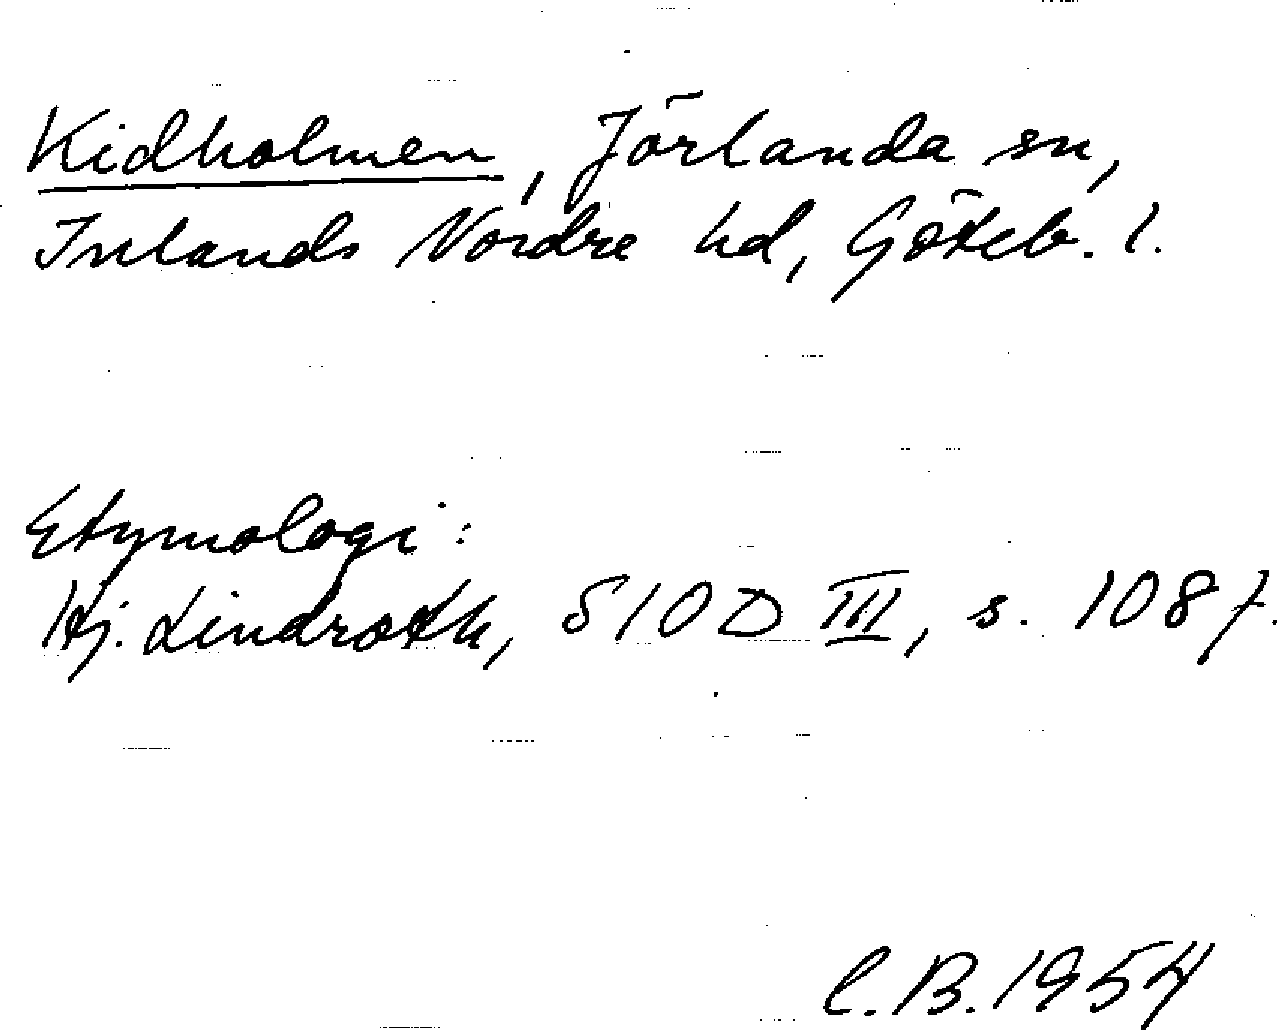 Kidholmen, Jörlanda sn,
Inlands Nordre hd, Göteb. l.
Etymologi:
Hj. Lindroth, SIOD III, s. 108 f.
C.B. 1954